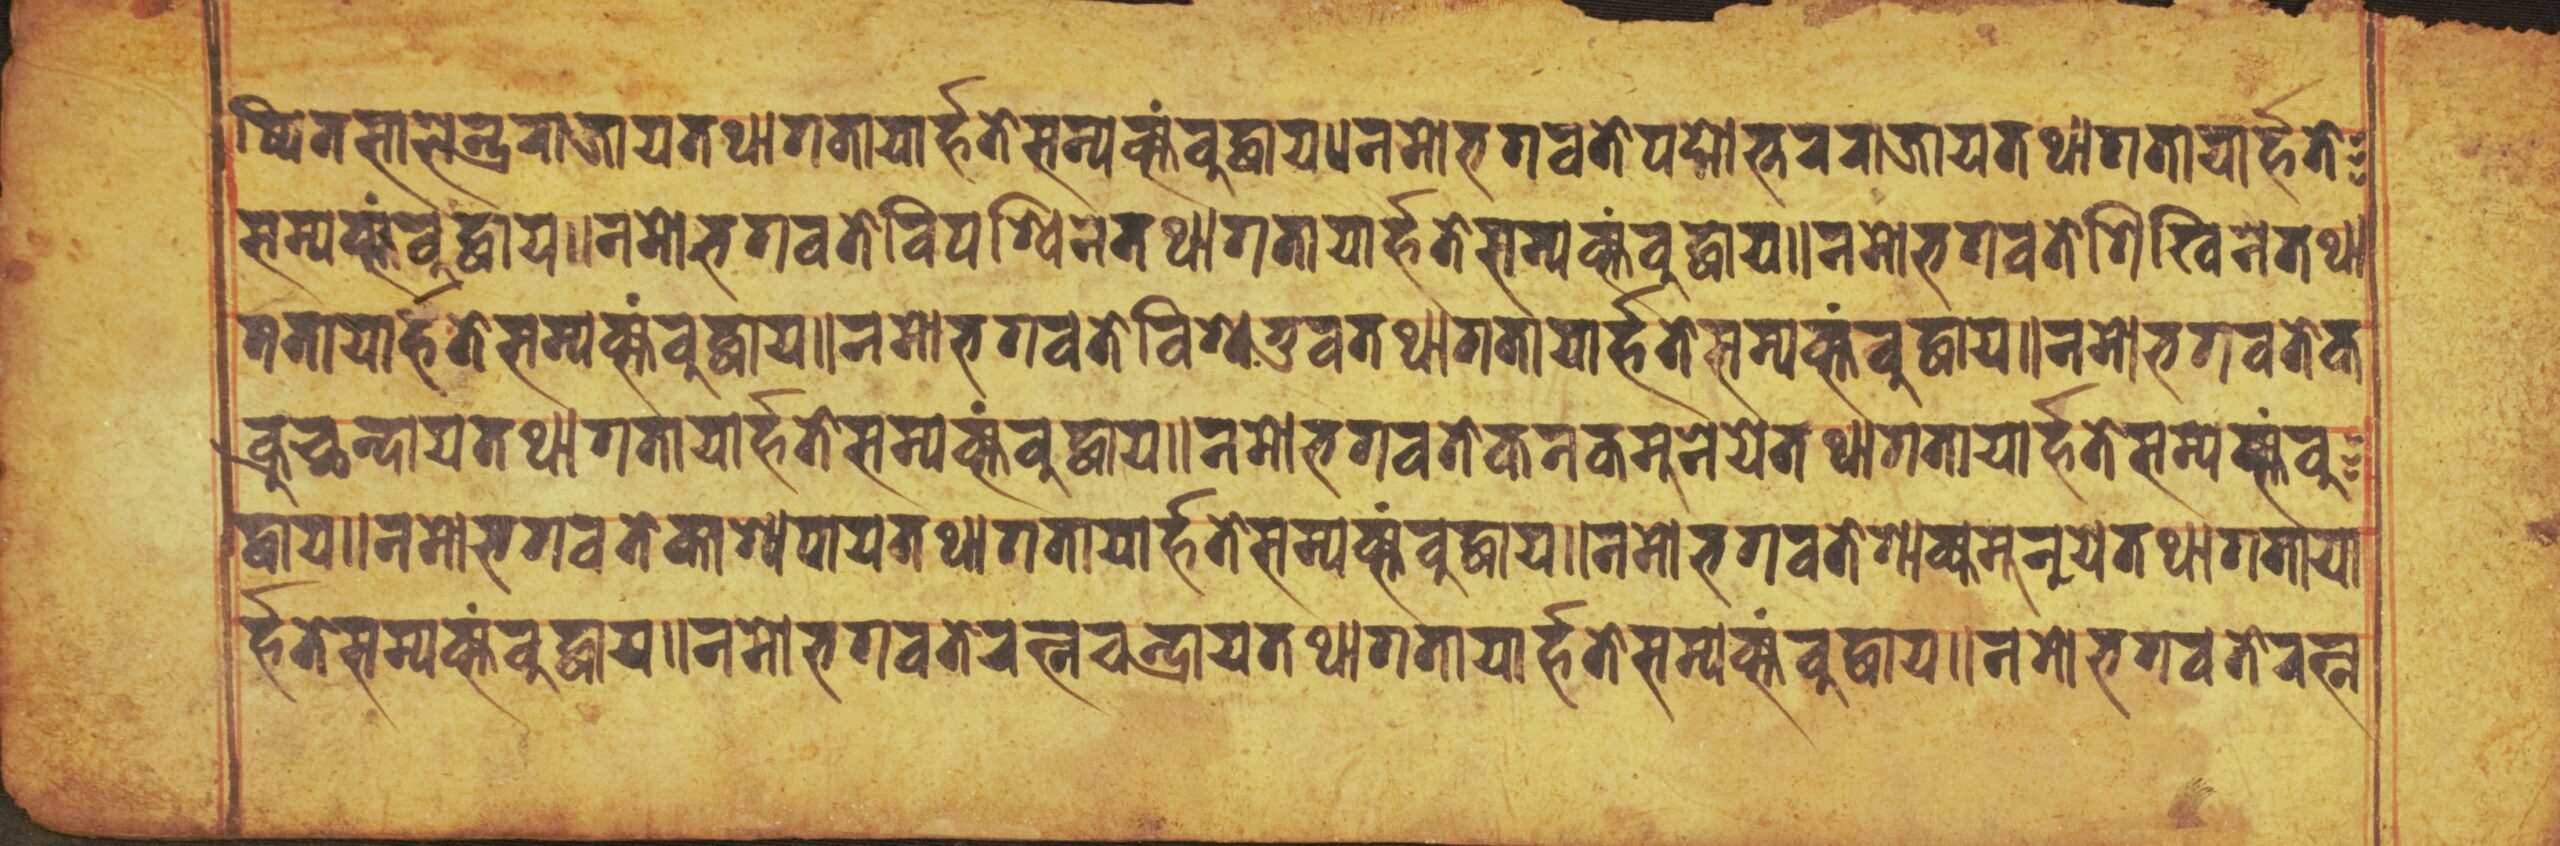 ष्पितसालेन्द्रराजायतथागतायार्हतेसम्यक्संबुद्धाय॥नमोभगवतेपद्मोत्तरराजायतथागतायार्हते
सम्यक्संबुद्धाय॥नमोभगवतेविपश्यिनेतथागतायार्हतेसम्यक्संबुद्धाय॥नमोभगवतेशिखिनेतथा
गतायार्हतेसम्यक्संबुद्धाय॥नमोभगवतेविश्वभुवतथागतायार्हतेसम्यक्संबुद्धाय॥नमोभगवतेक
क्रुच्छन्दायतथागतायार्हतेसम्यक्संबुद्धाय॥नमोभगवतेकनकमुनेयेतथागतायार्हतेसम्यक्संबु
द्धाय॥नमोभगवतेकाश्यपायतथागतायार्हतेसम्यक्संबुद्धाय॥नमोभगवतेशाक्यमुनयेतथागताया
र्हतेसम्यक्संबुद्धाय॥नमोभगवतेरत्नचन्द्रायतथागतायार्हतेसम्यक्संबुद्धाय॥नमोभगवतेरत्न